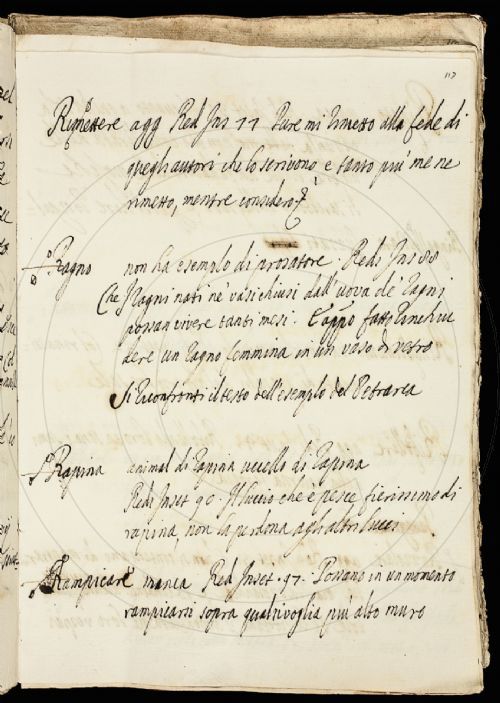 117
Rimettere agg Red Ins 77 Pure mi rimetto alla fede di
quegli autori che lo scrivono e tanto piu me ne
rimetto, mentre considero &
Ragno non ha esempio di prosatore. Redi Ins 88
Che i Ragni nati ne' vasi chiusi dall'uova de' ragni
possan vivere tanti mesi. E appo fatto rinchiu
dere un ragno femmina in un vaso di vetro
Si riconfronti il testo dell'esempio del Petrarca
Rapina animal di rapina uccello di rapina
Redi Inset 90. Il luccio che è pesce fierissimo di
rapina, non la perdona agli altri lucci
Rampicare manca Red Inset. 97. Possano in un momento
rampicarsi sopra qualsivoglia piu alto muro